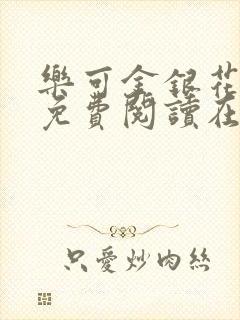 樂可金銀花
免費閱讀在
只愛炒肉絲